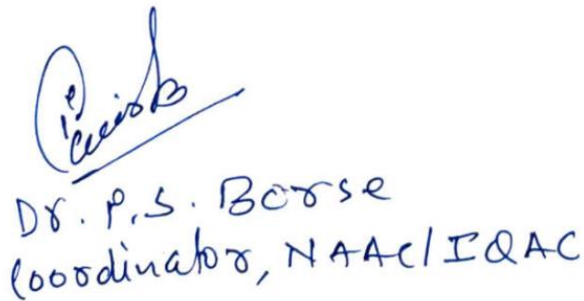 Dr. P.S. Borse
Coordinator, NAAC/IQAC